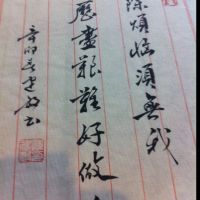 除煩惱須無我
歷盡艱難好做
辛卯春建書